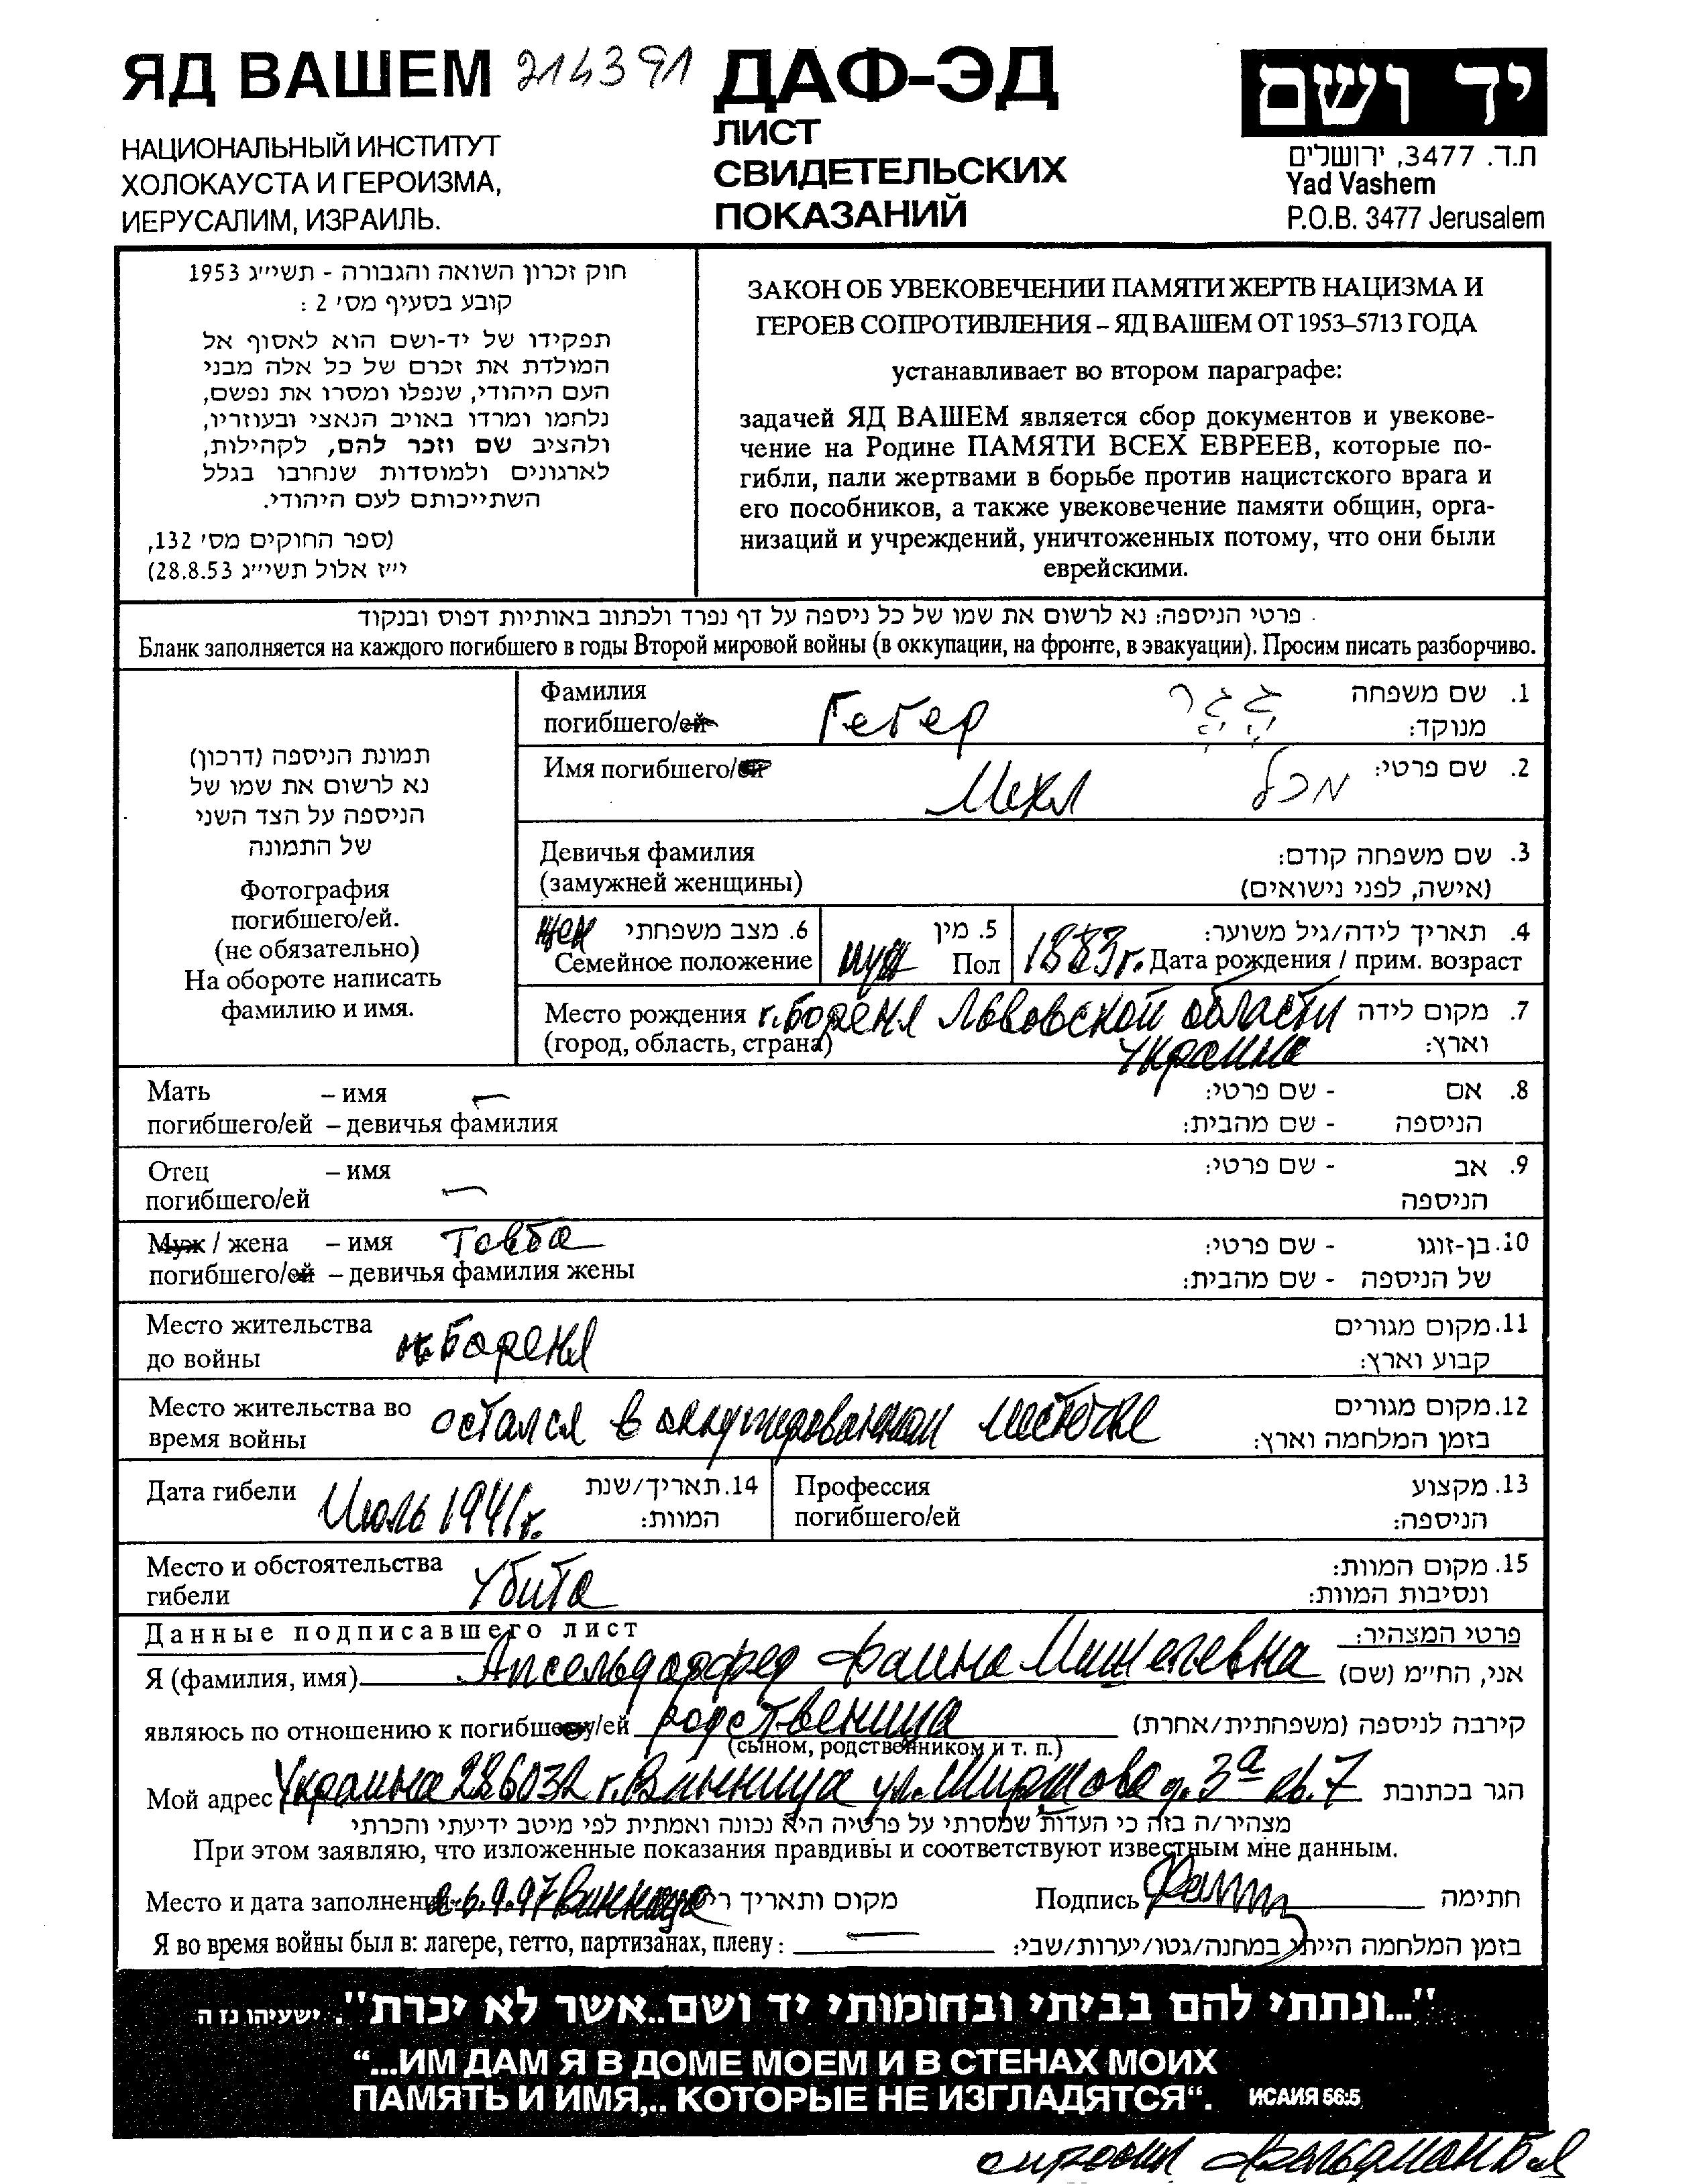 ЯД ВАШЕМ 214391
НАЦИОНАЛЬНЫЙ ИНСТИТУТ
ХОЛОКАУСТА И ГЕРОИЗМА,
ИЕРУСАЛИМ, ИЗРАИЛЬ.
ДАФ-ЭД
ЛИСТ
СВИДЕТЕЛЬСКИХ
ПОКАЗАНИЙ
יד ושם
ת.ד. 3477, ירושלים
Yad Vashem
P.O.B. 3477 Jerusalem
חוק זכרון השואה והגבורה - תשי״ג 1953
קובע בסעיף מס׳ 2 :
תפקידו של יד-ושם הוא לאסוף אל
המולדת את זכרם של כל אלה מבני
העם היהודי, שנפלו ומסרו את נפשם,
נלחמו ומרדו באויב הנאצי ובעוזריו,
ולהציב שם וזכר להם, לקהילות,
לארגונים ולמוסדות שנחרבו בגלל
השתייכותם לעם היהודי.
(ספר החוקים מס׳ 132,
י״ז אלול תשי״ג 28.8.53)
ЗАКОН ОБ УВЕКОВЕЧЕНИИ ПАМЯТИ ЖЕРТВ НАЦИЗМА И
ГЕРОЕВ СОПРОТИВЛЕНИЯ – ЯД ВАШЕМ ОТ 1953–5713 ГОДА
устанавливает во втором параграфе:
задачей ЯД ВАШЕМ является сбор документов и увекове-
чение на Родине ПАМЯТИ ВСЕХ ЕВРЕЕВ, которые по-
гибли, пали жертвами в борьбе против нацистского врага и
его пособников, а также увековечение памяти общин, орга-
низаций и учреждений, уничтоженных потому, что они были
еврейскими.
פרטי הניספה: נא לרשום את שמו של כל ניספה על דף נפרד ולכתוב באותיות דפוס ובנקוד
Бланк заполняется на каждого погибшего в годы Второй мировой войны (в оккупации, на фронте, в эвакуации). Просим писать разборчиво.
תמונת הניספה (דרכון)
נא לרשום את שמו של
הניספה על הצד השני
של התמונה
Фотография
погибшего/ей.
(не обязательно)
На обороте написать
фамилию и имя.
Фамилия 1. שם משפחה
погибшего/ей Гегер גגר מנוקד:
Имя погибшего/ей Мехл מכל 2. שם פרטי:
Девичья фамилия 3. שם משפחה קודם:
(замужней женщины) (אישה, לפני נישואים)
жен 6. מצב משפחתי 5. מין 4. תאריך לידה/גיל משוער:
Семейное положение муж Пол 1883г. Дата рождения / прим. возраст
Место рождения Львовской области 7. מקום לידה
(город, область, страна) Украина וארץ:
Мать – имя - שם פרטי: 8. אם
погибшего/ей – девичья фамилия - שם מהבית: הניספה
Отец – имя - שם פרטי: 9. אב
погибшего/ей הניספה
Муж / жена – имя Товба - שם פרטי: 10. בן-זוגו
погибшего/ей – девичья фамилия жены - שם מהבית: של הניספה
Место жительства 11. מקום מגורים
до войны קבוע וארץ:
Место жительства во остался в оккупированном местечке 12. מקום מגורים
время войны בזמן המלחמה וארץ:
Дата гибели Июль 1941г. 14. תאריך/שנת המוות:
Профессия 13. מקצוע
погибшего/ей הניספה:
Место и обстоятельства 15. מקום המוות:
гибели Убита ונסיבות המוות:
Данные подписавшего лист פרטי המצהיר:
Я (фамилия, имя) Фаина אני, הח״מ (שם)
являюсь по отношению к погибшему/ей родственица קירבה לניספה (משפחתית/אחרת)
(сыном, родственником и т. п.)
Мой адрес Украина 286032 г. Винница ул. д. 3а кв. 7 הגר בכתובת
מצהיר/ה בזה כי העדות שמסרתי על פרטיה היא נכונה ואמתית לפי מיטב ידיעתי והכרתי
При этом заявляю, что изложенные показания правдивы и соответствуют известным мне данным.
Место и дата заполнения 6.9.97 Винница מקום ותאריך Подпись חתימה
Я во время войны был в: лагере, гетто, партизанах, плену: בזמן המלחמה הייתי במחנה/גטו/יערות/שבי:
"...ונתתי להם בביתי ובחומותי יד ושם..אשר לא יכרת". ישעיהו נו ה
“...ИМ ДАМ Я В ДОМЕ МОЕМ И В СТЕНАХ МОИХ
ПАМЯТЬ И ИМЯ,.. КОТОРЫЕ НЕ ИЗГЛАДЯТСЯ“. ИСАИЯ 56:5